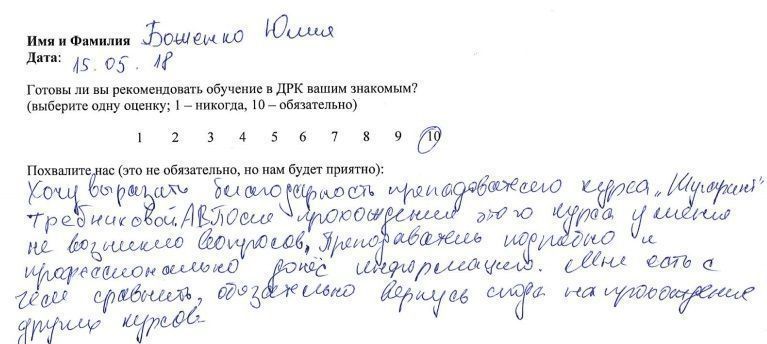 Имя и Фамилия Боженко Юлия
Дата: 15.05.18
Готовы ли вы рекомендовать обучение в ДРК вашим знакомым?
(выберите одну оценку; 1 – никогда, 10 – обязательно)
1 2 3 4 5 6 7 8 9 10
Похвалите нас (это не обязательно, но нам будет приятно):
Хочу выразать благодарность преподователю курса „Шугаринг"
Требниковой.А.В После прохождения этого курса у меня
не возникло вопросов. Преподаватель подробно и
професионально донёс информацию. Мне есть с
чем сравнить, обязательно вернусь сюда на прохождение
других курсов.